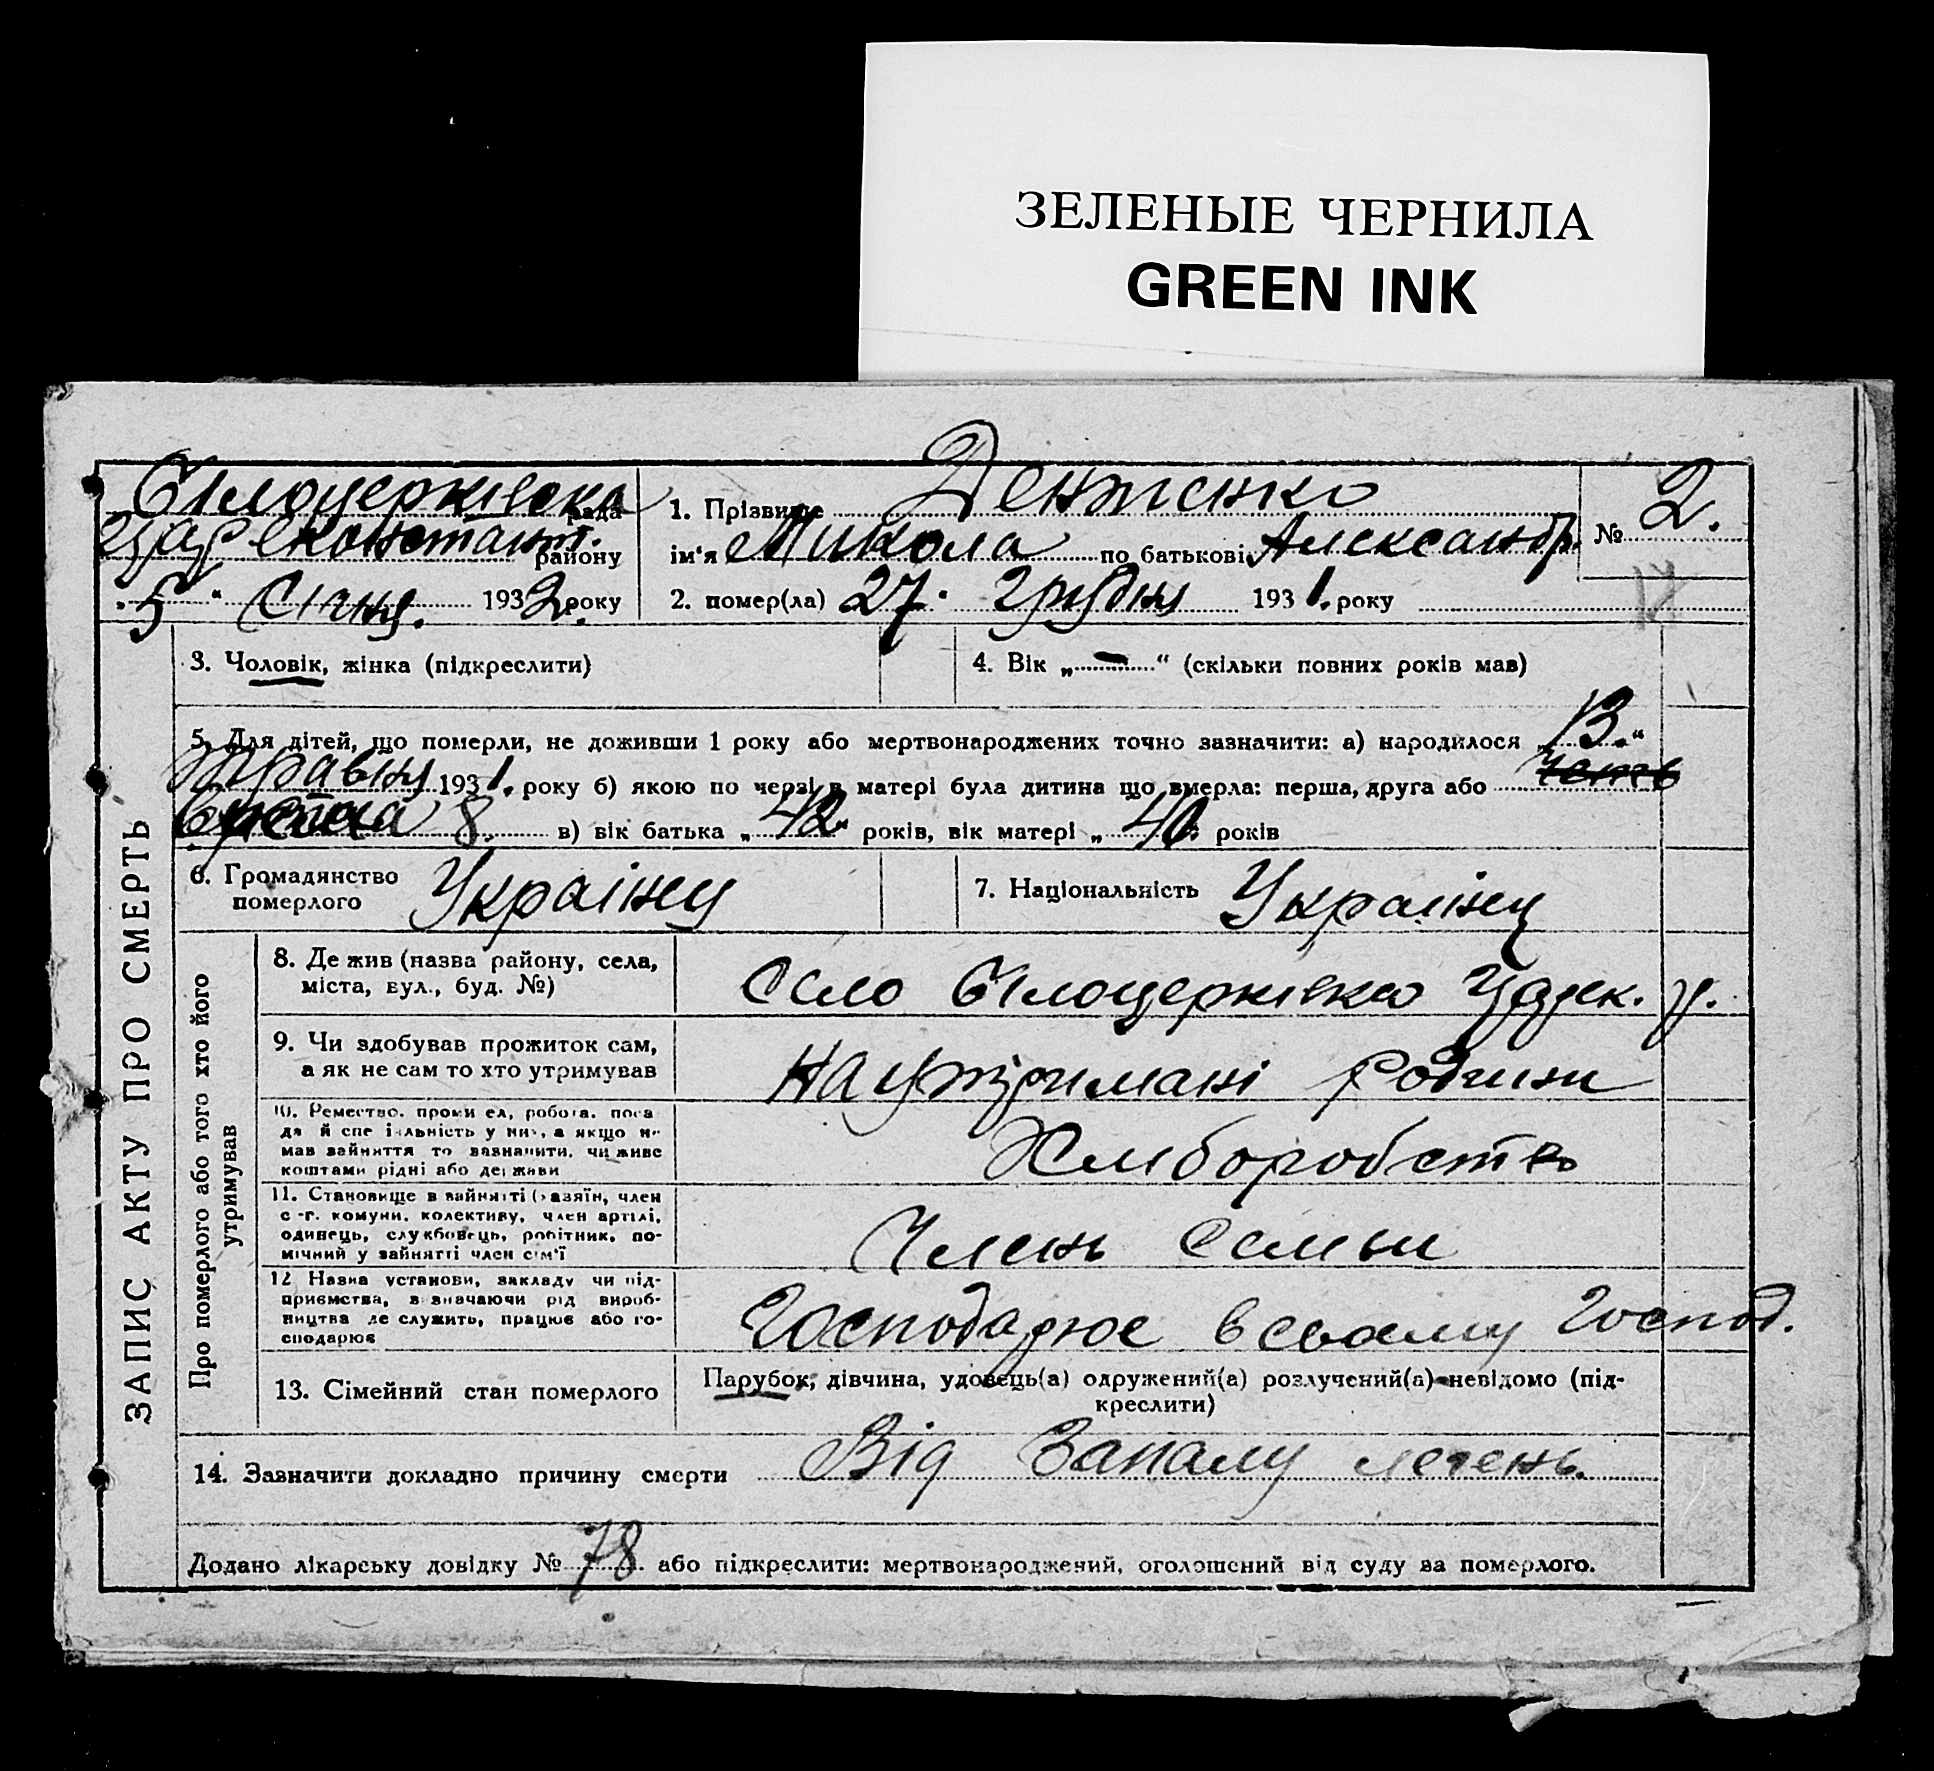 ЗЕЛЕНЫЕ ЧЕРНИЛА
GREEN INK
Білоцерківска рада
Цареконстант. району
„5“ Січня. 1932. року
1. Прізвище Демженко
ім'я Микола по батькові Александр.
№ 2.
2. помер(ла) 27. Грудня 1931. року
3. Чоловік, жінка (підкреслити)
4. Вік „—“ (скільки повних років мав)
5. Для дітей, що померли, не доживши 1 року або мертвонароджених точно зазначити: а) народилося „13.“
Травня 1931. року б) якою по черзі в матері була дитина що вмерла: перша, друга або
8. в) вік батька „42“ років, вік матері „40“ років
6. Громадянство померлого Українец
7. Національність Українец
ЗАПИС АКТУ ПРО СМЕРТЬ
Про померлого або того хто його утримував
8. Де жив (назва району, села,
міста, вул., буд. №)
Село Білоцерківка Царек. р.
9. Чи здобував прожиток сам,
а як не сам то хто утримував
На утримані родини
10. Ремество, промисел, робота, поса
да й спеціальність у ний, а якщо не
мав зайняття то зазначити, чи живе
коштами рідні або держави
Хлиборобство
11. Становище в зайнятті (хазяїн, член
с.-г. комуни, колективу, член артілі,
одинець, службовець, робітник, по-
мічний у зайнятті член сім'ї
Члень семьи
12. Назва установи, закладу чи під-
приємства, визначаючи рід вироб-
ництва де служить, працює або го-
сподарює
Господарює в своему Господ.
13. Сімейний стан померлого
Парубок, дівчина, удовець(а) одружений(а) розлучений(а) невідомо (під-
креслити)
14. Зазначити докладно причину смерти Від Запалу легень.
Додано лікарську довідку № 78 або підкреслити: мертвонароджений, оголошений від суду за померлого.